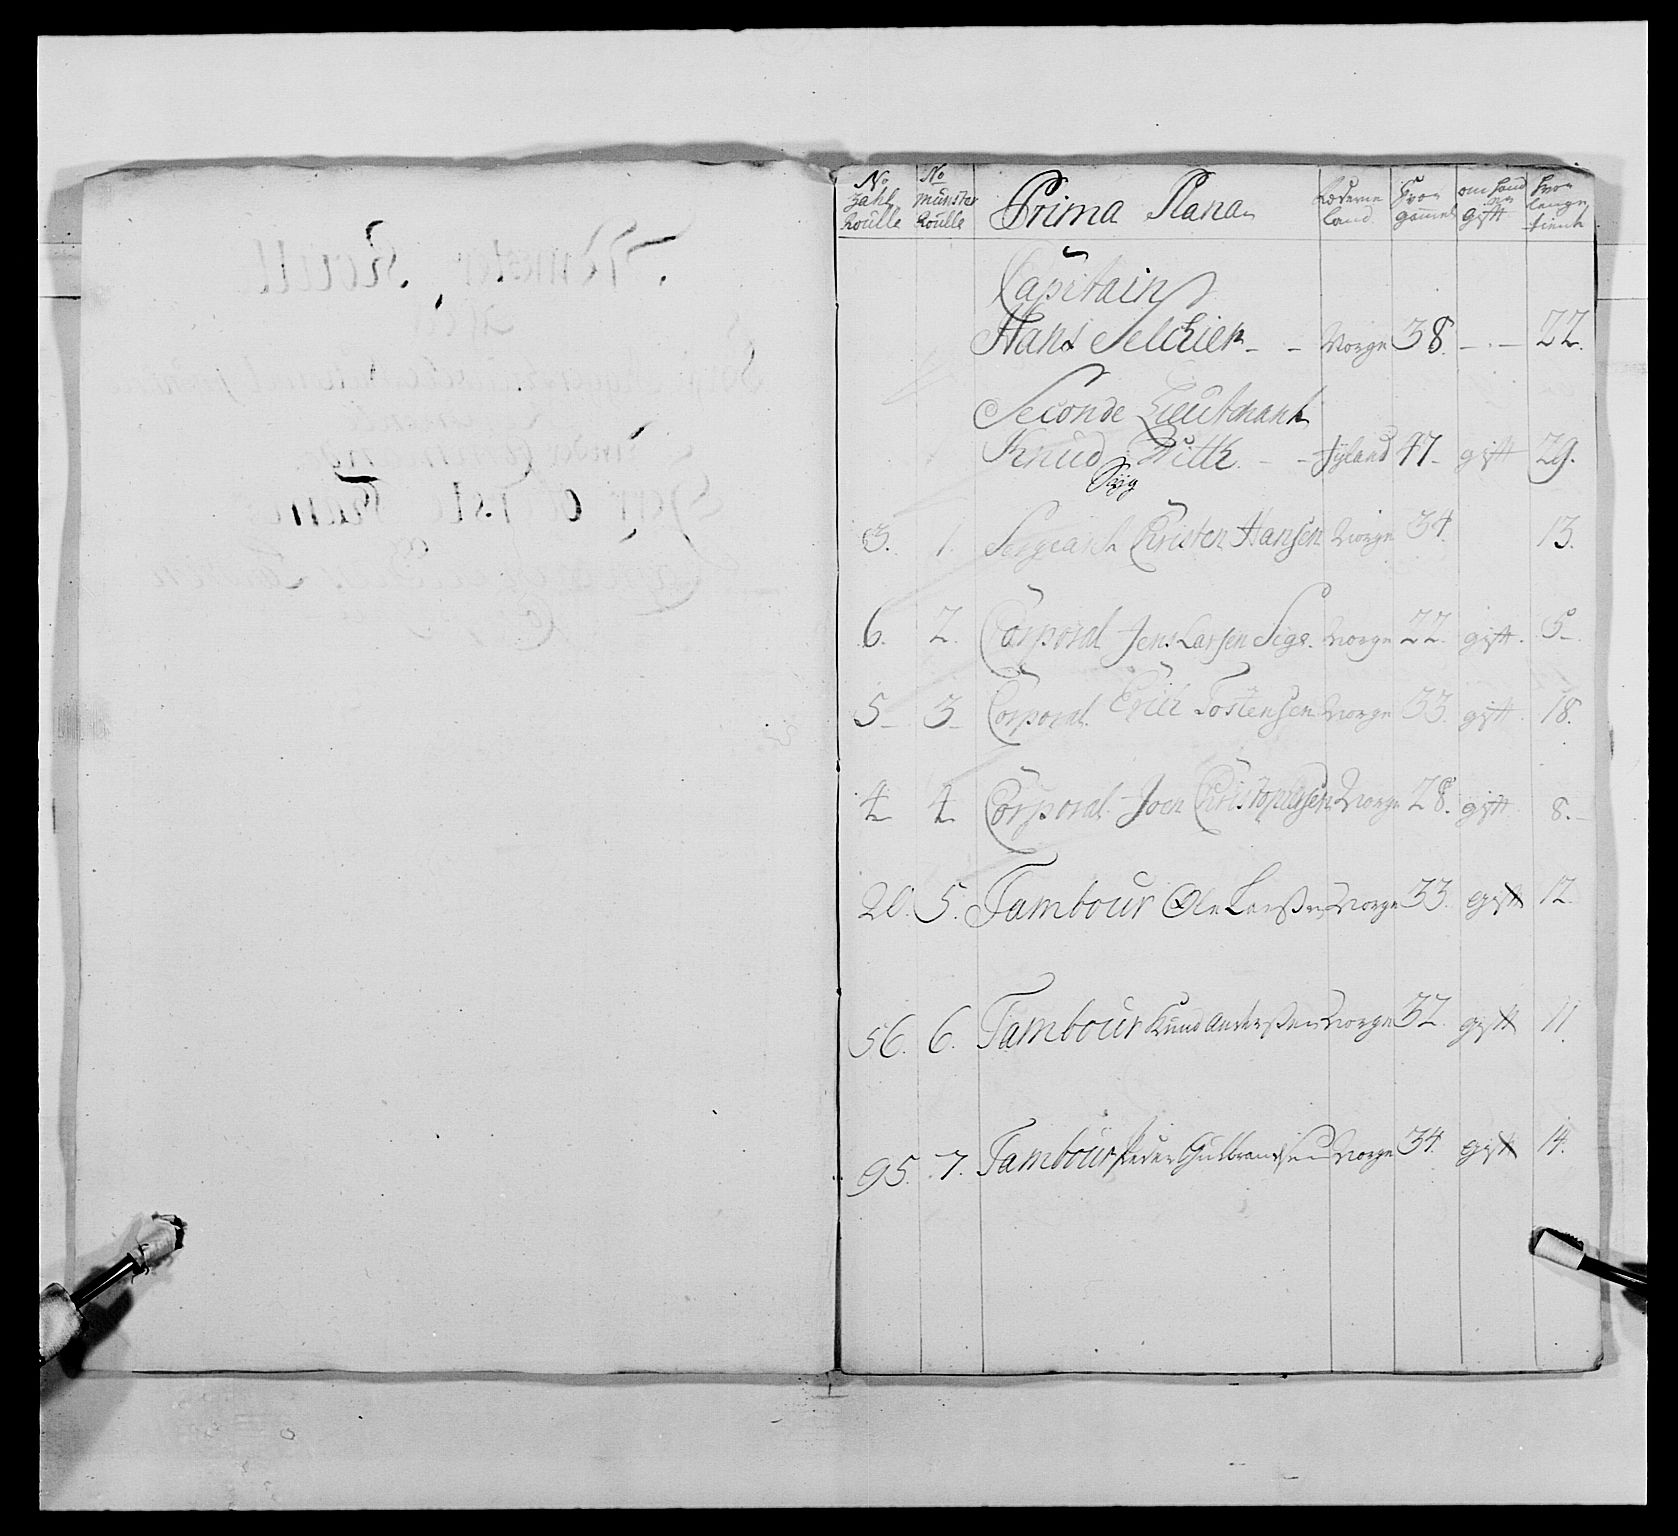 No Zahl Roulle | No Munster Roulle | Prima Plana | Fæderne land | Hvor gammel | om hand er gift | hvor lenge tient
Capitain
Hans Selchier - - Norge 38. - . - 22.
Seconde Lieutnant
Knud - - Jyland 47 - gift 29.
Syg
3. 1. Sergeant Christen Hansen Norge 34. 13.
6. 2. Corporal Jens Larsen Norge 22. gift. 5 -
5 - 3 - Corporal Erich Tostensen Norge 33. gift 18.
4 4 Corporal Joen Christophersen Norge 28. gift 8. -
20. 5. Tambour Ole Larssen Norge 33. gift 12.
56. 6. Tambour Knud Anderssen Norge 32. gift 11.
95. 7. Tambour Peder Gulbrandsen Norge 34. gift 14.